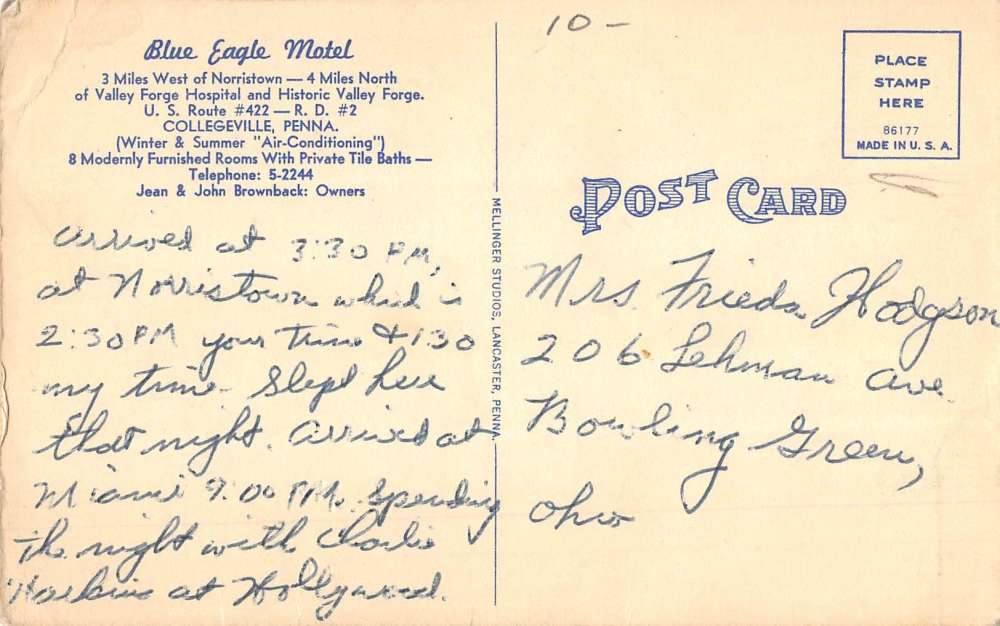 Blue Eagle Motel
3 Miles West of Norristown — 4 Miles North
of Valley Forge Hospital and Historic Valley Forge.
U. S. Route #422 — R. D. #2
COLLEGEVILLE, PENNA.
(Winter & Summer "Air-Conditioning")
8 Modernly Furnished Rooms With Private Tile Baths —
Telephone: 5-2244
Jean & John Brownback: Owners
Arrived at 3:30 P.M.
at Norristown which is
2:30 PM your Time & 1:30
my time. Slept here
that night. Arrived at
Miami 9:00 P.M. Spending
the night with Charlie
at Hollywood.
MELLINGER STUDIOS, LANCASTER, PENNA.
10-
PLACE
STAMP
HERE
86177
MADE IN U. S. A.
POST CARD
Mrs. Frieda Hodgson
206 Lehman Ave.
Bowling Green,
Ohio